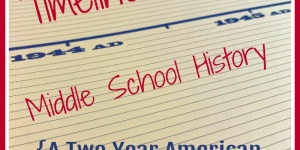 Timeline
1944 AD
1945 AD
Middle School History
{A Two Year American